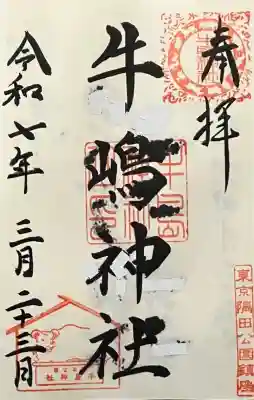 奉拝
牛嶋神社
令和七年 三月二十三日
東京隅田公園鎮座